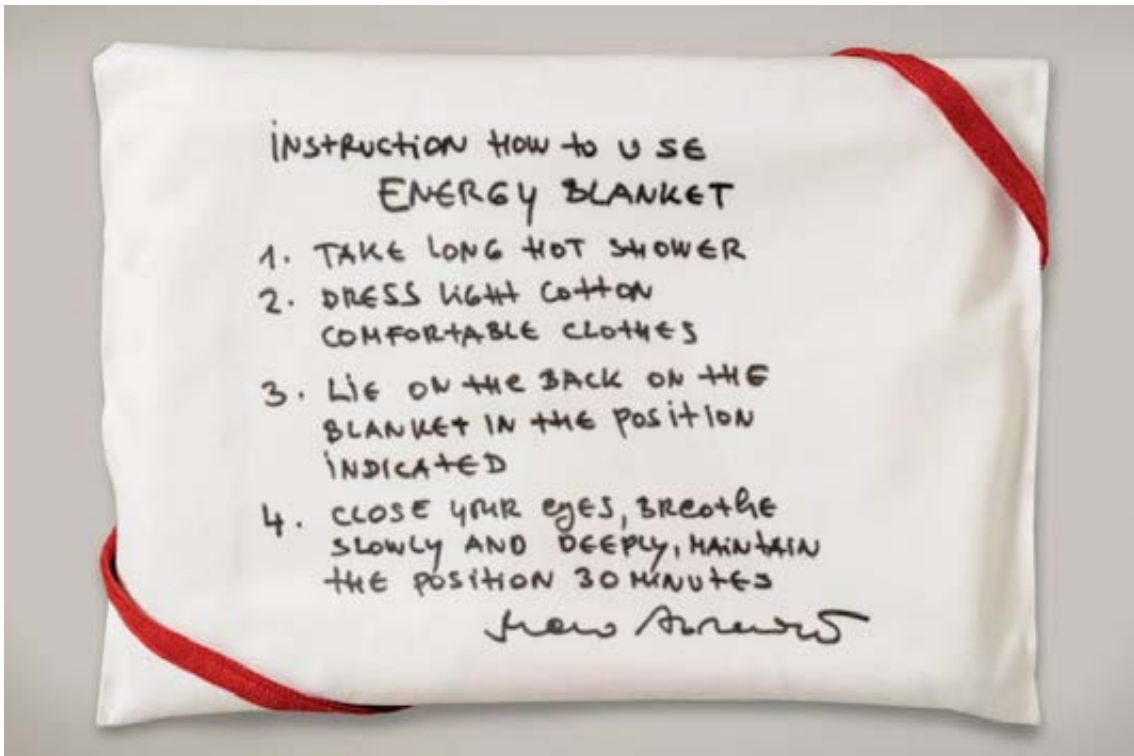 iNStRuctiON HOW to USE
ENERGY BLANKET
1. TAKE LONG HOT SHOWER
2. DRESS LIGHT COTTON
COMFORTABLE CLOTHES
3. LiE ON tHe BACK ON tHE
BLANKET IN tHE POSITION
iNDICATED
4. CLOSE YOUR eyes, BReatHE
SLOWLY AND DEEPLY, MAINTAIN
tHE POSITION 30 MINUTES